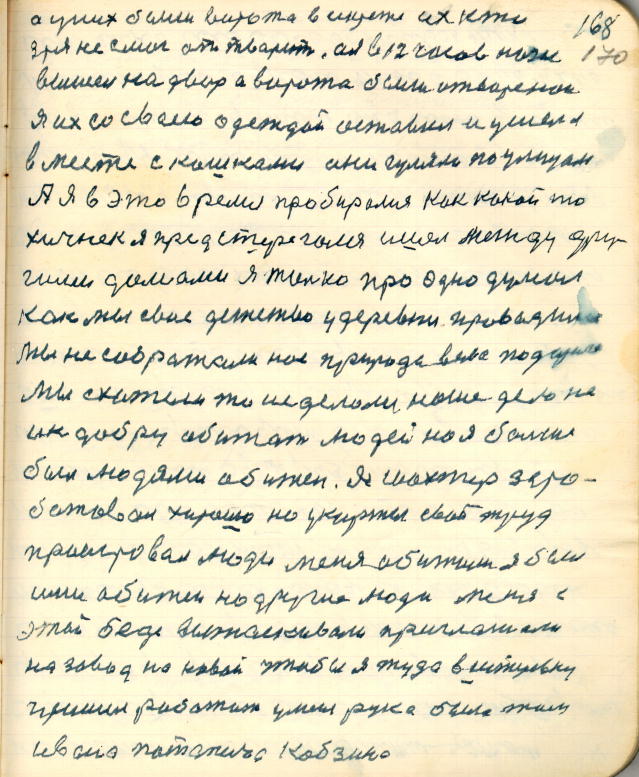 168
а у них были ворота в их кто
170
зря не смог отвварит. ая в 12 часов ночи
вышел на двор а ворота были отворенои
я их со сваею одеждой оставил и ушел я
в месте с кошками они гуляли по улицам
А я в это время пробирался как какой то
хичнек я предстерегался ишол между дру-
гими домами я толко про одно думал
как мы свое детство у деревни провадили
мы не сображали нас природа вела
мы схатели то и делоли, наше дело не
ик добру абижат людей но я болше
был людями обижен. Я шахтер заро-
батовал хорошо но укарты свой труд
проигровал люди меня абижали я был
ими абижен но другие люди меня с
этой беде вытаскивали приглашали
на завод на новой чтобы я туда
пришел работат умея рука была там
Ивана Потапича Кобзина